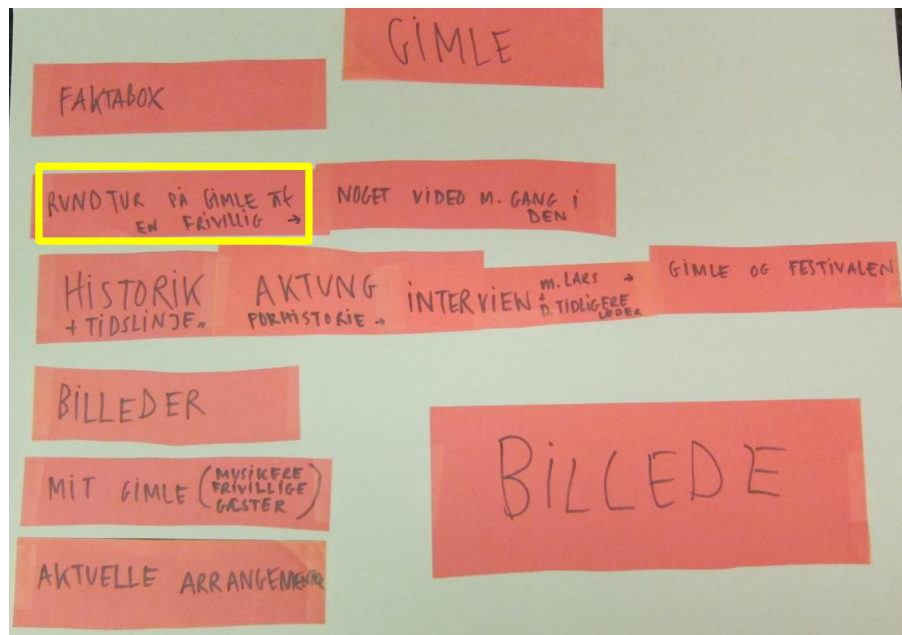 GIMLE
FAKTABOX
RUNDTUR PÅ GIMLE AF
EN FRIVILLIG →
NOGET VIDEO M. GANG i
DEN
HISTORIK
+ TIDSLINJE
AKTUNG
PORHISTORIE →
INTERVIEN
m. LARS →
+
D. TIDLIGERE
LEDER
GIMLE OG FESTIVALEN
BILLEDER
MIT GIMLE (MUSIKERE
FRIVILLIGE
GÆSTER)
AKTUELLE ARRANGEMENTER
BILLEDE